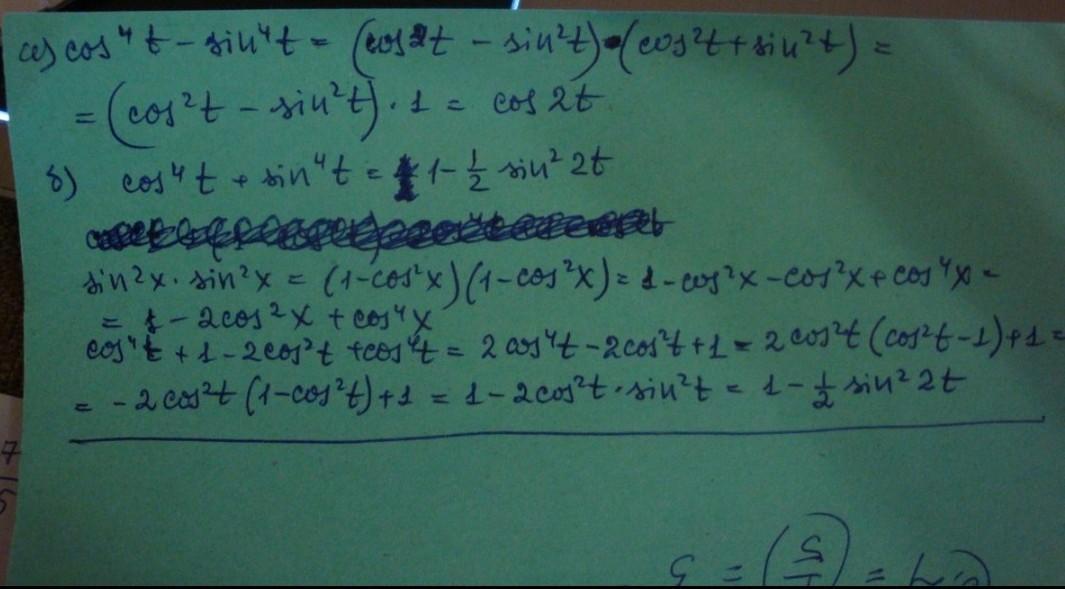 а) cos⁴t − sin⁴t = (cos²t − sin²t)·(cos²t + sin²t) =
= (cos²t − sin²t)·1 = cos 2t
б) cos⁴t + sin⁴t = 1 − ½ sin² 2t
sin²x · sin²x = (1−cos²x)(1−cos²x) = 1 − cos²x − cos²x + cos⁴x =
= 1 − 2cos²x + cos⁴x
cos⁴t + 1 − 2cos²t + cos⁴t = 2cos⁴t − 2cos²t + 1 = 2cos²t (cos²t − 1) + 1 =
= −2cos²t (1−cos²t) + 1 = 1 − 2cos²t · sin²t = 1 − ½ sin² 2t
7
5